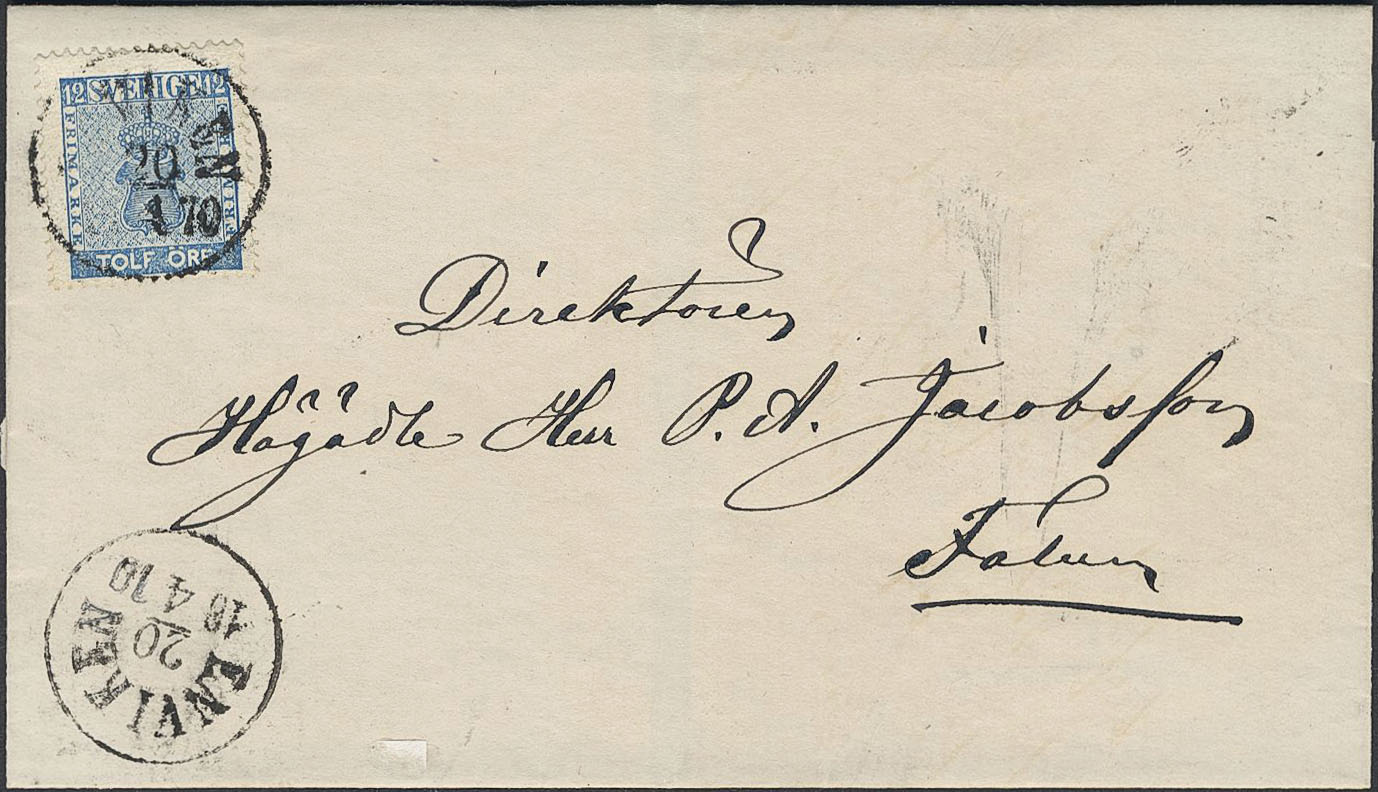 12 SVERIGE 12
FRIMÄRKE
FRIMÄRKE
TOLF ÖRE
20
4 70
Direktören
Högädle Herr P. A. Jacobsson
Falun
ENVIKEN
20
18 4 70